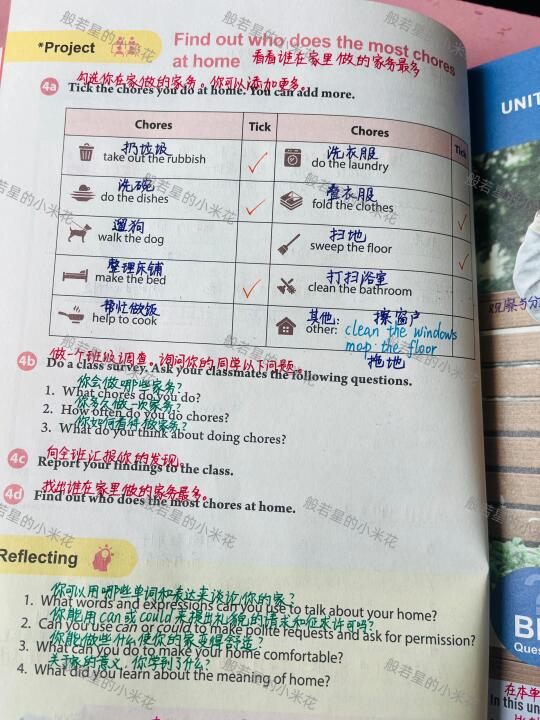 *Project
Find out who does the most chores
at home 看看谁在家里做的家务最多
勾选你在家做的家务。你可以添加更多。
4a Tick the chores you do at home. You can add more.
Chores Tick Chores Tick
扔垃圾
take out the rubbish
洗衣服
do the laundry
洗碗
do the dishes
叠衣服
fold the clothes
遛狗
walk the dog
扫地
sweep the floor
整理床铺
make the bed
打扫浴室
clean the bathroom
帮忙做饭
help to cook
其他: 擦窗户
other: clean the windows
mop the floor
拖地
做一个班级调查。询问你的同学以下问题。
4b Do a class survey. Ask your classmates the following questions.
你会做哪些家务?
1. What chores do you do?
你多久做一次家务?
2. How often do you do chores?
你如何看待做家务?
3. What do you think about doing chores?
向全班汇报你的发现。
4c Report your findings to the class.
找出谁在家里做的家务最多。
4d Find out who does the most chores at home.
Reflecting
你可以用哪些单词和表达来谈论你的家?
1. What words and expressions can you use to talk about your home?
你能用can或could来提出礼貌的请求和征求许可吗?
2. Can you use can or could to make polite requests and ask for permission?
你能做些什么使你的家变得舒适?
3. What can you do to make your home comfortable?
关于家的意义,你学到了什么?
4. What did you learn about the meaning of home?
UNIT
观察与分
BI
Ques
在本单
In this un
般若星的小米花